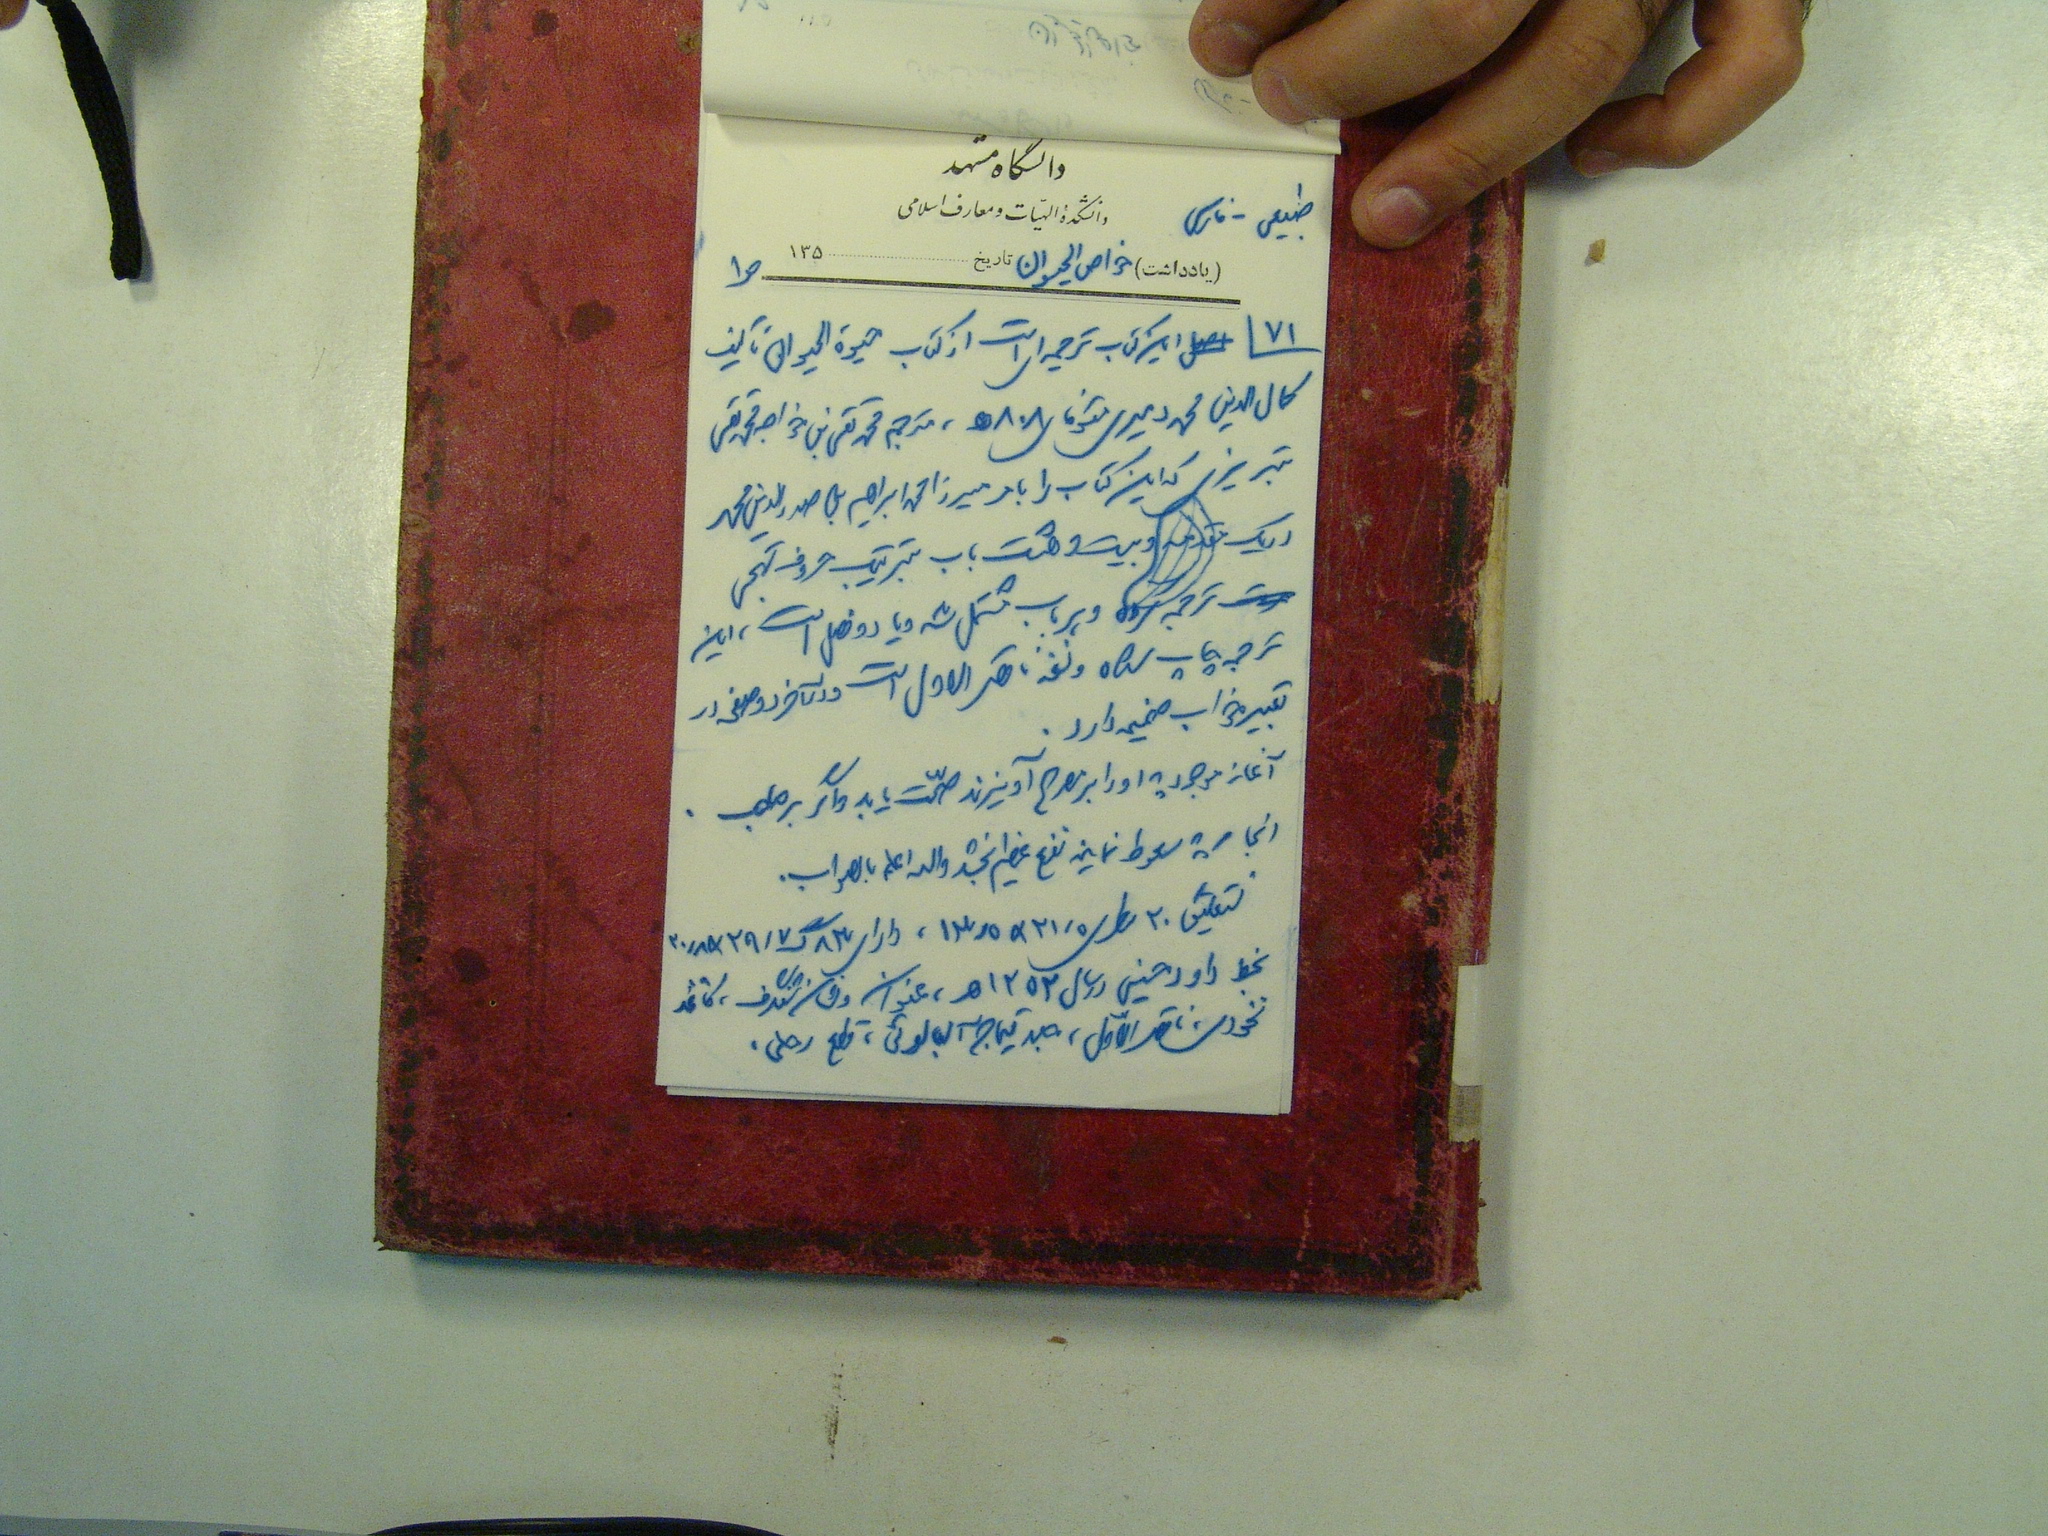 دانشگاه مشهد
دانشکدهٔ الهیّات و معارف اسلامی
طبیعی - فارسی
(یادداشت) خواص الحیوان تاریخ ۱۳۵
۷۱ این کتاب ترجمه ای است از کتاب حیوة الحیوان تألیف
کمال الدین محمد دمیری متوفای ۸۰۸ ه ، مترجم محمد تقی بن خواجه محمد تقی
تبریزی که این کتاب را بامر میرزا محمد ابراهیم بن صدرالدین محمد
در یک مقدمه و بیست و هشت باب بترتیب حروف تهجی
ترجمه کرده و هر باب مشتمل سه و یا دو فصل است ، این
ترجمه چاپ شده و نسخه ناقص الاول است و در آخر دو صفحه در
تعبیر خواب ضمیمه دارد .
آغاز موجود : او را بر مصروع آویزند صحّت یابد و اگر بر .
انجام : سعوط نمایند نفع عظیم بخشد والله اعلم بالصواب .
نستعلیق ۲۰ سطری ۲۱/۵ × ، دارای ۸۳ گ ۲۹/۷ ×
بخط داود حسینی در سال ۱۲۵۳ ه ، عنوان و نشان شنگرف ، کاغذ
نخودی ، ناقص الاوّل ، جلد تیماج آلبالوئی ، قطع رحلی .